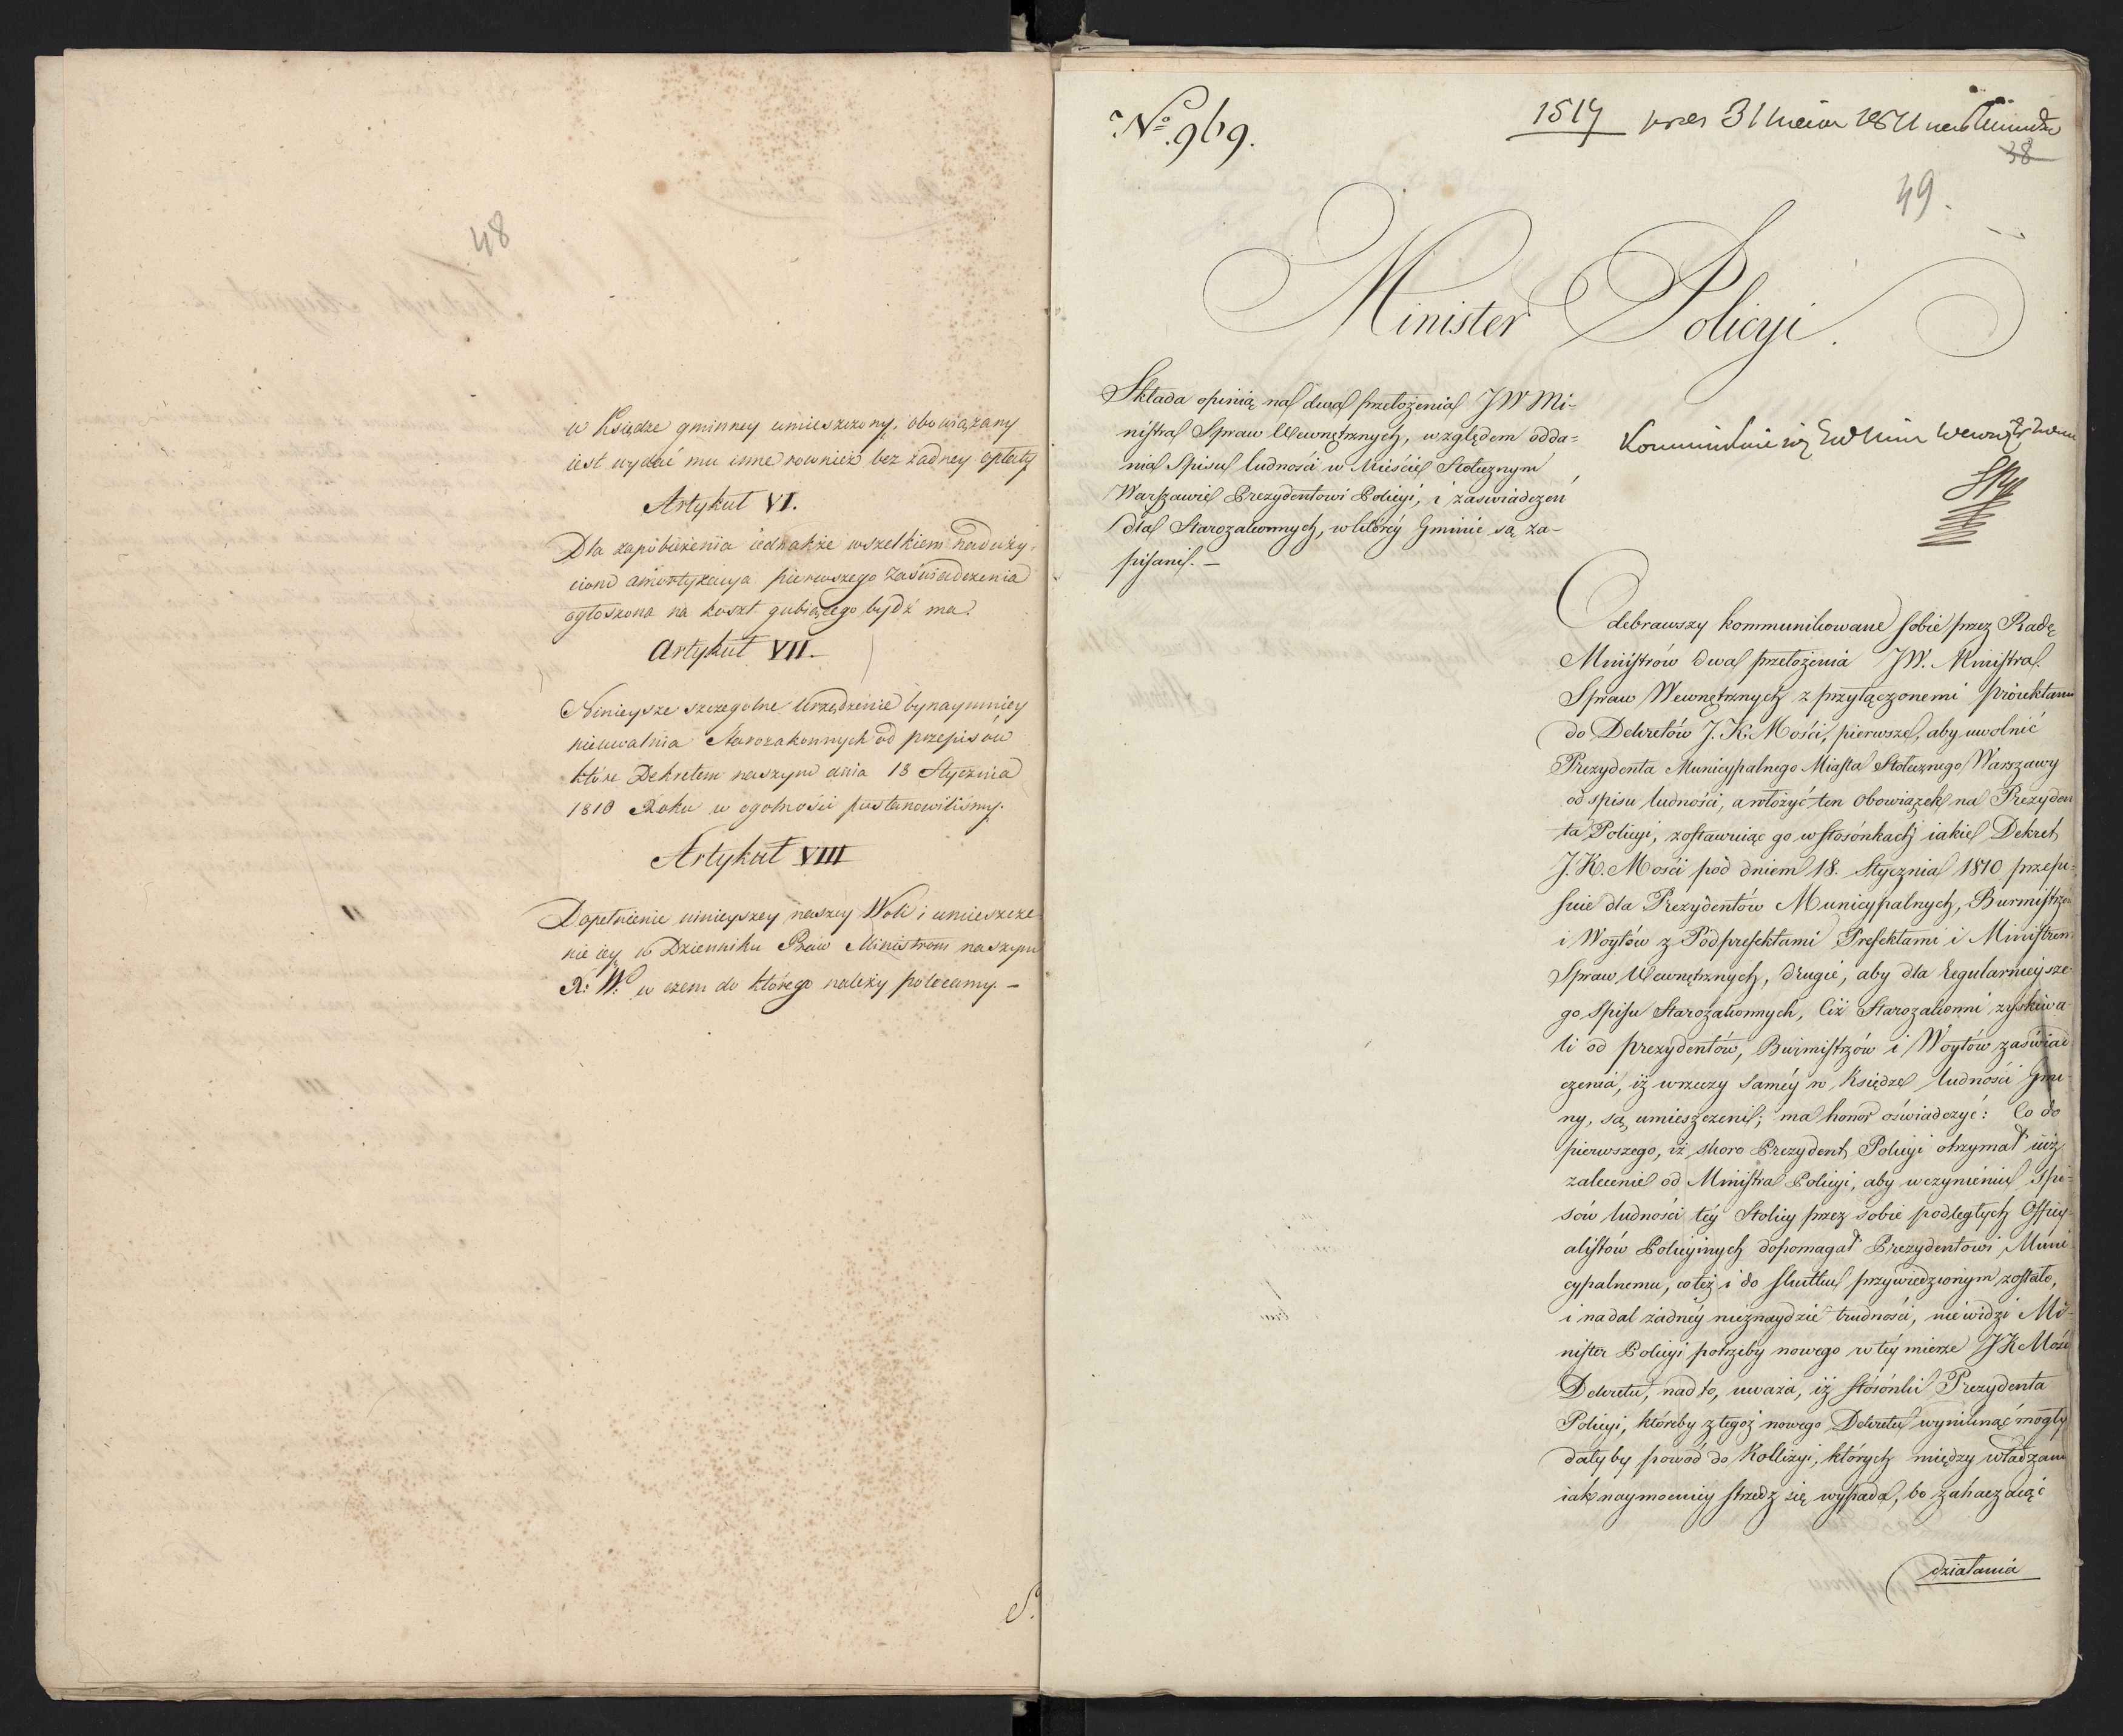 48
w Księdze gminney umieszczony, obowiązany
iest wydać mu inne rownież bez żadney opłaty
Artykuł VI.
Dla zapobieżenia iednakże wszelkiem naduży-
ciom amortyzacya pierwszego Zaświadczenia
ogłoszona na koszt gubiącego bydź ma.
Artykuł VII.
Ninieysze szczegolne Urządzenie bynaymniey
nieuwalnia Starozakonnych od przepisów
które Dekretem naszym dnia 18 Stycznia
1810 Roku w ogolności postanowiliśmy.
Artykuł VIII
Dopełnienie ninieyszey naszey Woli i umieszcze-
nie iey w Dzienniku Praw Ministrom naszym
R: W. w czem do którego należy polecamy. –
No. 969.
1517
38
49.
Minister Policyi.
Składa opinią na dwa przełożenia JW Mi-
nistra Spraw Wewnętrznych, względem odda-
nia Spisu ludności w Mieście Stołecznym
Warszawie Prezydentowi Policyi, i zaswiadczeń
dla Starozakonnych, w którey Gminie są za-
pisani. –
Odebrawszy kommunikowane sobie przez Radę
Ministrów dwa przełożenia JW. Ministra
Spraw Wewnętrznych z przyłączonemi proiektami
do Dekretów J. K. Mości, pierwsze, aby uwolnić
Prezydenta Municypalnego Miasta Stołecznego Warszawy
od spisu ludności, a włożyć ten obowiązek na Prezyden
ta Policyi, zostawuiąc go w stosónkach iakie Dekret
J. K. Mości pod dniem 18. Stycznia 1810 przepi-
suie dla Prezydentów Municypalnych, Burmistrzów
i Woytów z Podprefektami Prefektami i Ministrem
Spraw Wewnętrznych, drugie, aby dla regularnieysze-
go Spisu Starozakonnych, ciż Starozakonni zyskiwa-
li od prezydentów, Burmistrzów i Woytów zaświad-
czenia, iż w rzeczy saméy w Księdze ludności Gmi-
ny, są umieszczeni; ma honor oświadczyć: Co do
pierwszego, iż skoro Prezydent Policyi otrzymał iuż
zalecenie od Ministra Policyi, aby w czynieniu Spi-
sów ludności téy Stolicy przez sobie podległych Officy-
alistów Policyinych dopomagał Prezydentowi Muni
cypalnemu, co też i do skutku przywiedzionym zostało,
i nadal żadnéy nieznaydzie trudności, nie widzi Mi-
nister Policyi potrzeby nowego w téy mierze JK Mości
Dekretu, nad to, uważa, iż stósónki Prezydenta
Policyi, któreby z tegoż nowego Dekretu wyniknąć mogły
dały by powód do Kollizyi, których między władzami
iak naymocniey strzedz się wypada, bo zahaczaiąc
działania